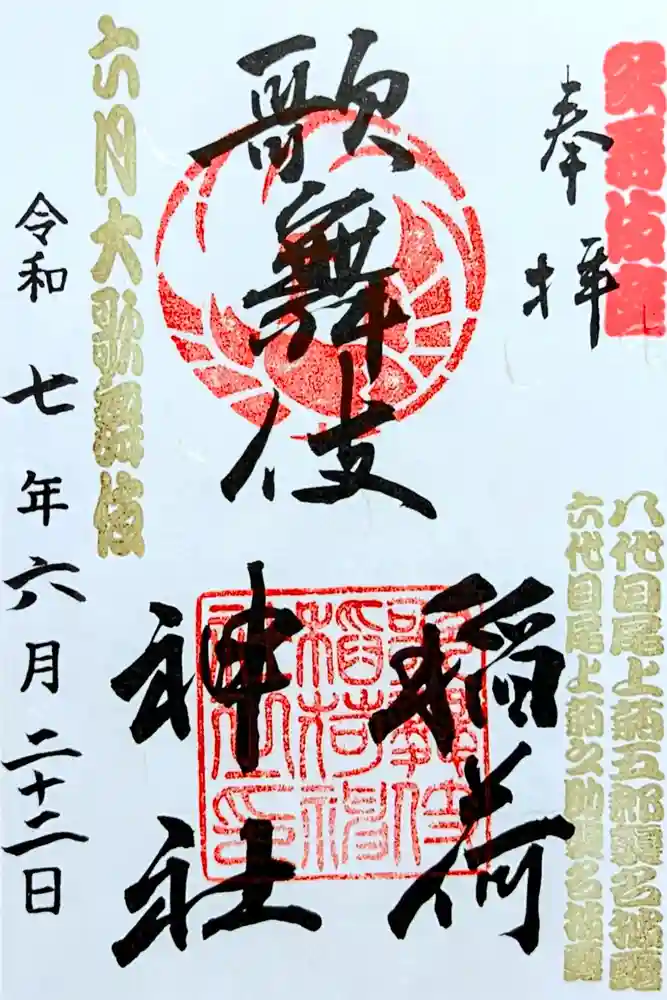 歌舞伎座
奉拝
八代目尾上菊五郎襲名披露
六代目尾上菊之助襲名披露
歌舞伎
稲荷
神社
歌舞伎
稲荷神
社之印
六月大歌舞伎
令和七年六月二十二日